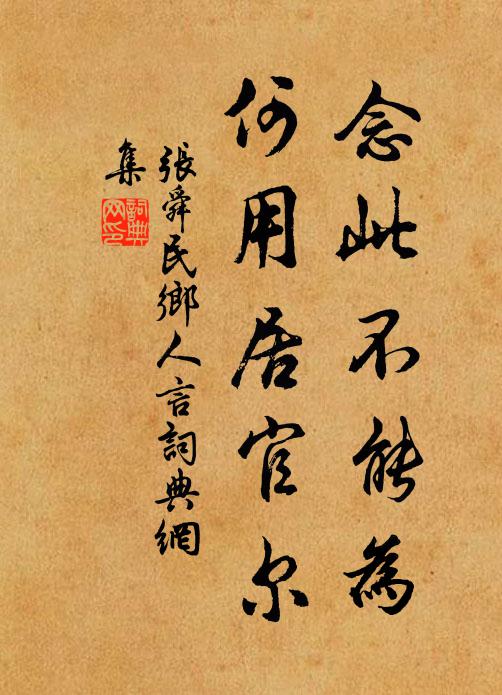 念此不能為
何用居官尔
張舜民鄉人言詞典網
集
詞典
网印